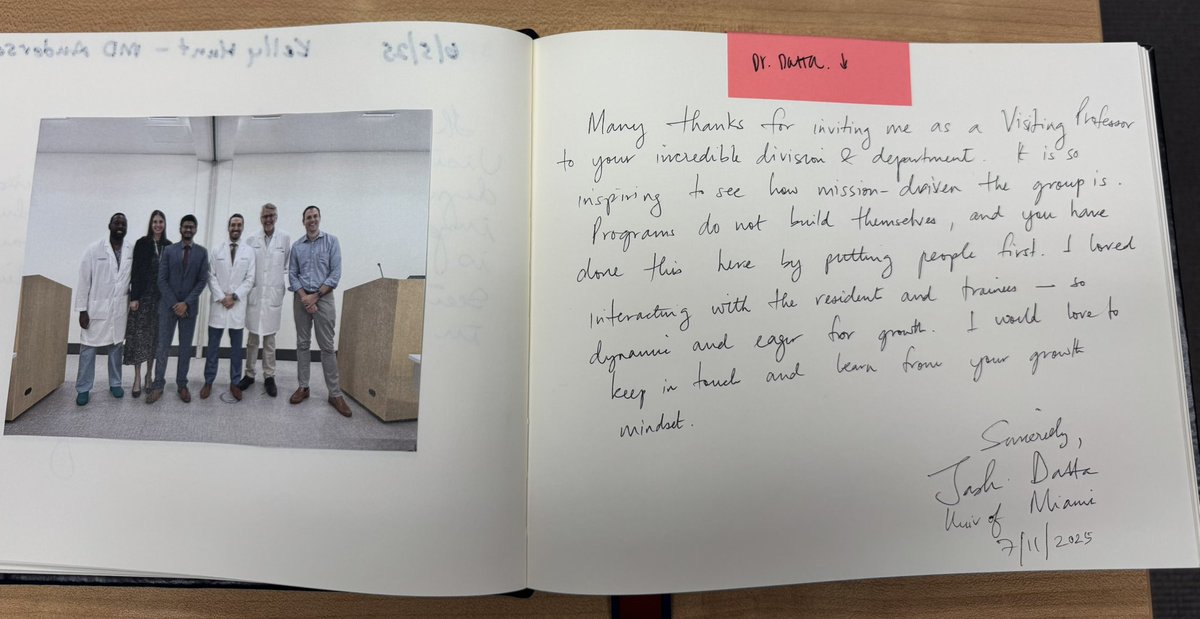 6/5/25 Kelly Hunt - MD Anderso
Dr. Datta. ↓
Many thanks for inviting me as a Visiting Professor
to your incredible division & department. It is so
inspiring to see how mission-driven the group is.
Programs do not build themselves, and you have
done this here by putting people first. I loved
interacting with the resident and trainees — so
dynamic and eager for growth. I would love to
keep in touch and learn from your growth
mindset.
Sincerely,
Jash. Datta
Univ of Miami
7/11/2025